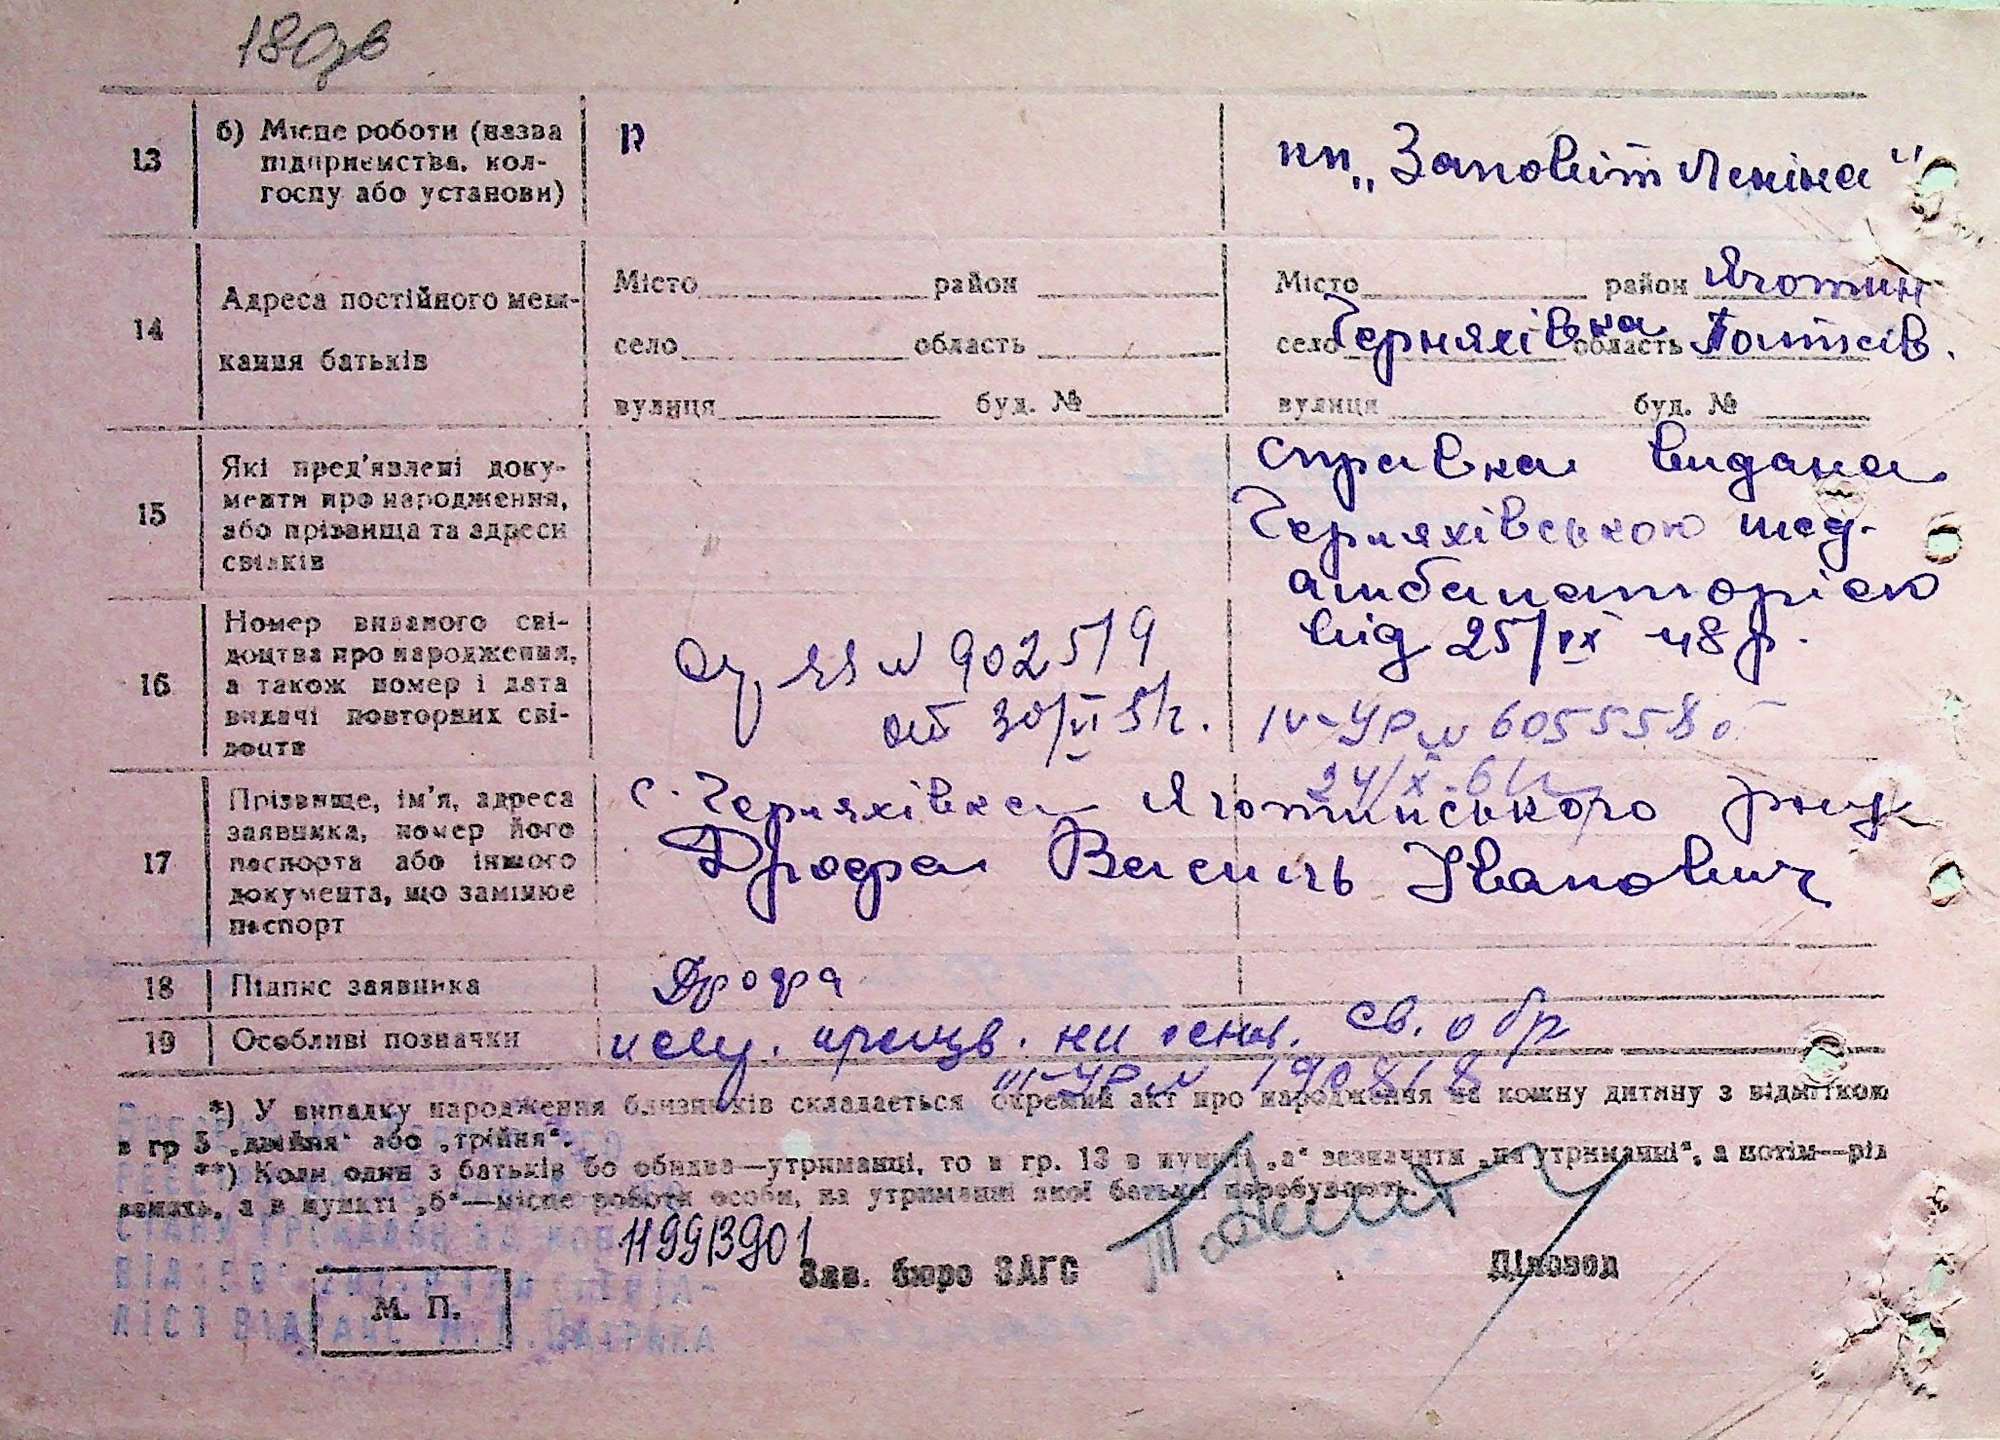 180
13
б) Місце роботи (назва
підприємства, кол-
госпу або установи)
"Заповіт Леніна"
14
Адреса постійного меш-
кання батьків
Місто район
село область
вулиця буд. №
Місто район Яготин
село Черняхівка область Полтав.
вулиця буд. №
15
Які пред'явлені доку-
менти про народження,
або прізвища та адреси
свідків
справка видана
Черняхівською мед.
амбулаторією
від 25/IX 48 р.
16
Номер виданого сві-
доцтва про народження,
а також номер і дата
видачі повторних сві-
доцтв
ЯЯ № 902519
от 30/VI 51г.
IV-УР № 605558 от
24/X-61г
17
Прізвище, ім'я, адреса
заявника, номер його
паспорта або іншого
документа, що замінює
паспорт
с. Черняхівка Яготинського р-ну
Дрофа Василь Іванович
18
Підпис заявника
Дрофа
19
Особливі позначки
св. о бр
III-УР № 190818
*) У випадку народження близнюків складається окремий акт про народження на кожну дитину з відміткою
в гр 5 „двійня“ або „трійня“.
**) Коли один з батьків бо обидва—утриманці, то в гр. 13 в пункті „а“ зазначити „на утриманні“, а потім—рід
занять, а в пункті „б“—місце роботи особи, на утриманні якої батьки перебувають.
11993901
Зав. бюро ЗАГС
Діловод
М. П.